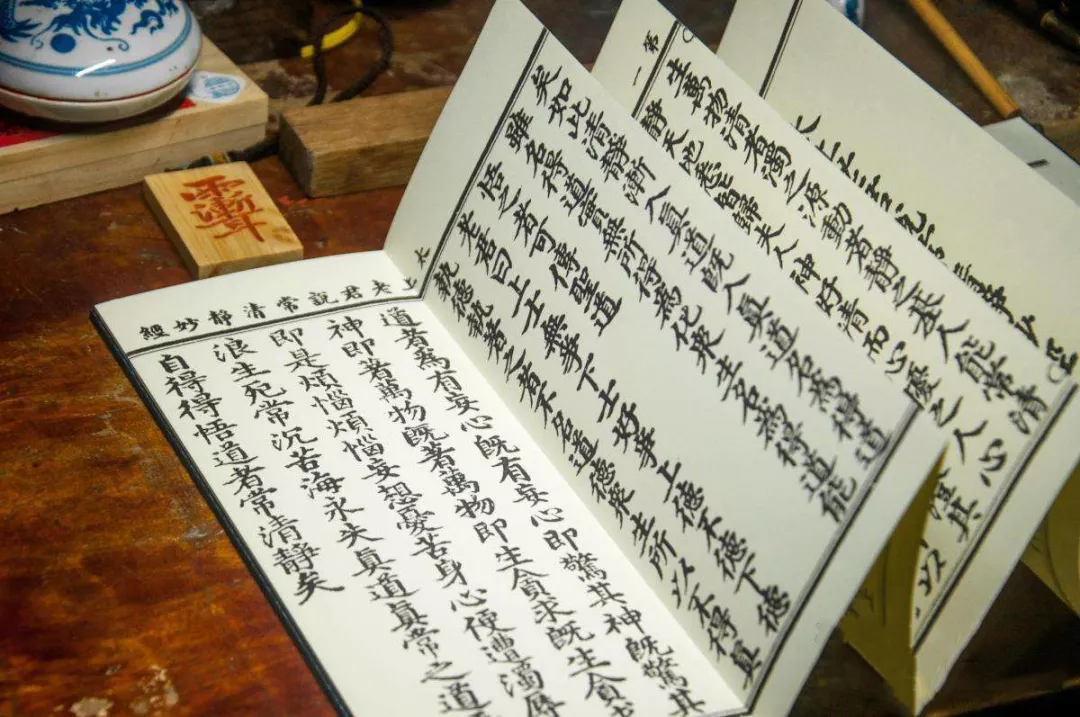 第一
生萬物清者濁之源動者靜之基人能常清
靜天地悉皆歸夫人神好清而心擾之人心
矣如此清靜漸入真道既入真道名為得道
雖名得道實無所得為化眾生名為得道能
悟之者可傳聖道
老君曰上士無爭下士好爭上德不德下德
執德執著之者不名道德眾生所以不得真
太上老君說常清靜妙經
道者為有妄心既有妄心即驚其神既驚其
神即著萬物既著萬物即生貪求既生貪求
即是煩惱煩惱妄想憂苦身心便遭濁辱
浪生死常沉苦海永失真道真常之道
自得得悟道者常清靜矣